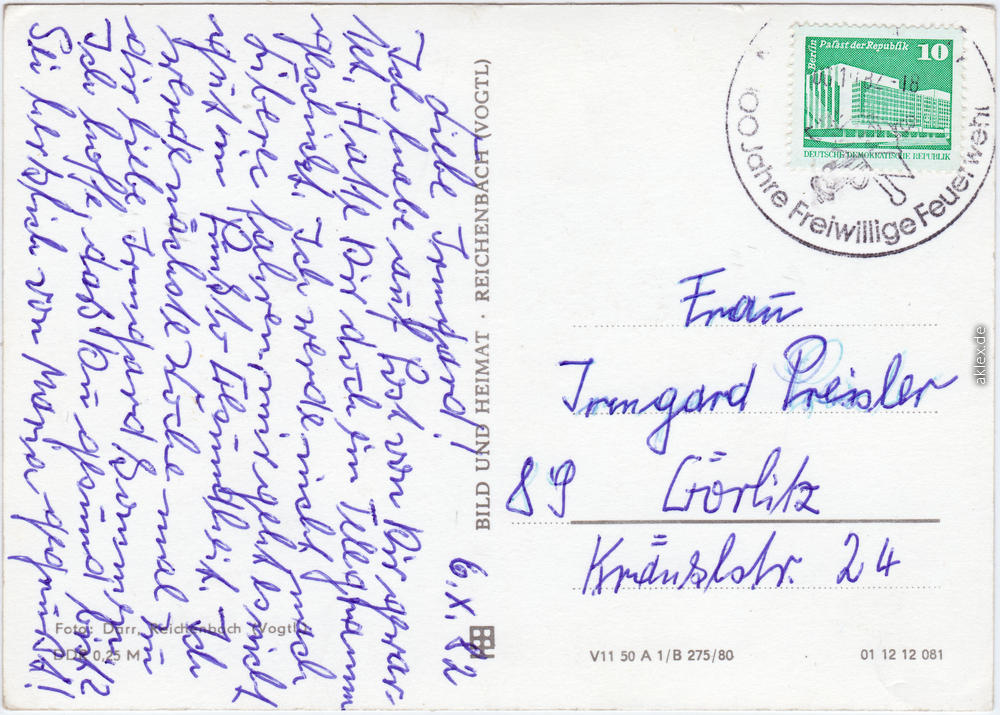 6.X.82
Liebe Irmgard!
Ich habe auf Post von Dir gewar-
tet. Hatte Dir doch ein Telegramm
geschickt. Ich werde nicht nach
fahren, mir geht es nicht
gut m. Gesundheit. Ich
werde nächste Woche mal zu
dir liebe Irmgard
Ich hoffe, daß Du gesund bist
Sei herzlich von Maria gegrüßt!
Foto: Darr, Reichenbach (Vogtl.)
DDR 0,25 M
BILD UND HEIMAT · REICHENBACH (VOGTL)
Berlin Palast der Republik 10
DEUTSCHE DEMOKRATISCHE REPUBLIK
100 Jahre Freiwillige Feuerwehr
Frau
Irmgard Preisler
89 Görlitz
Kränzlstr. 24
V11 50 A 1/B 275/80
01 12 12 081
aklex.de